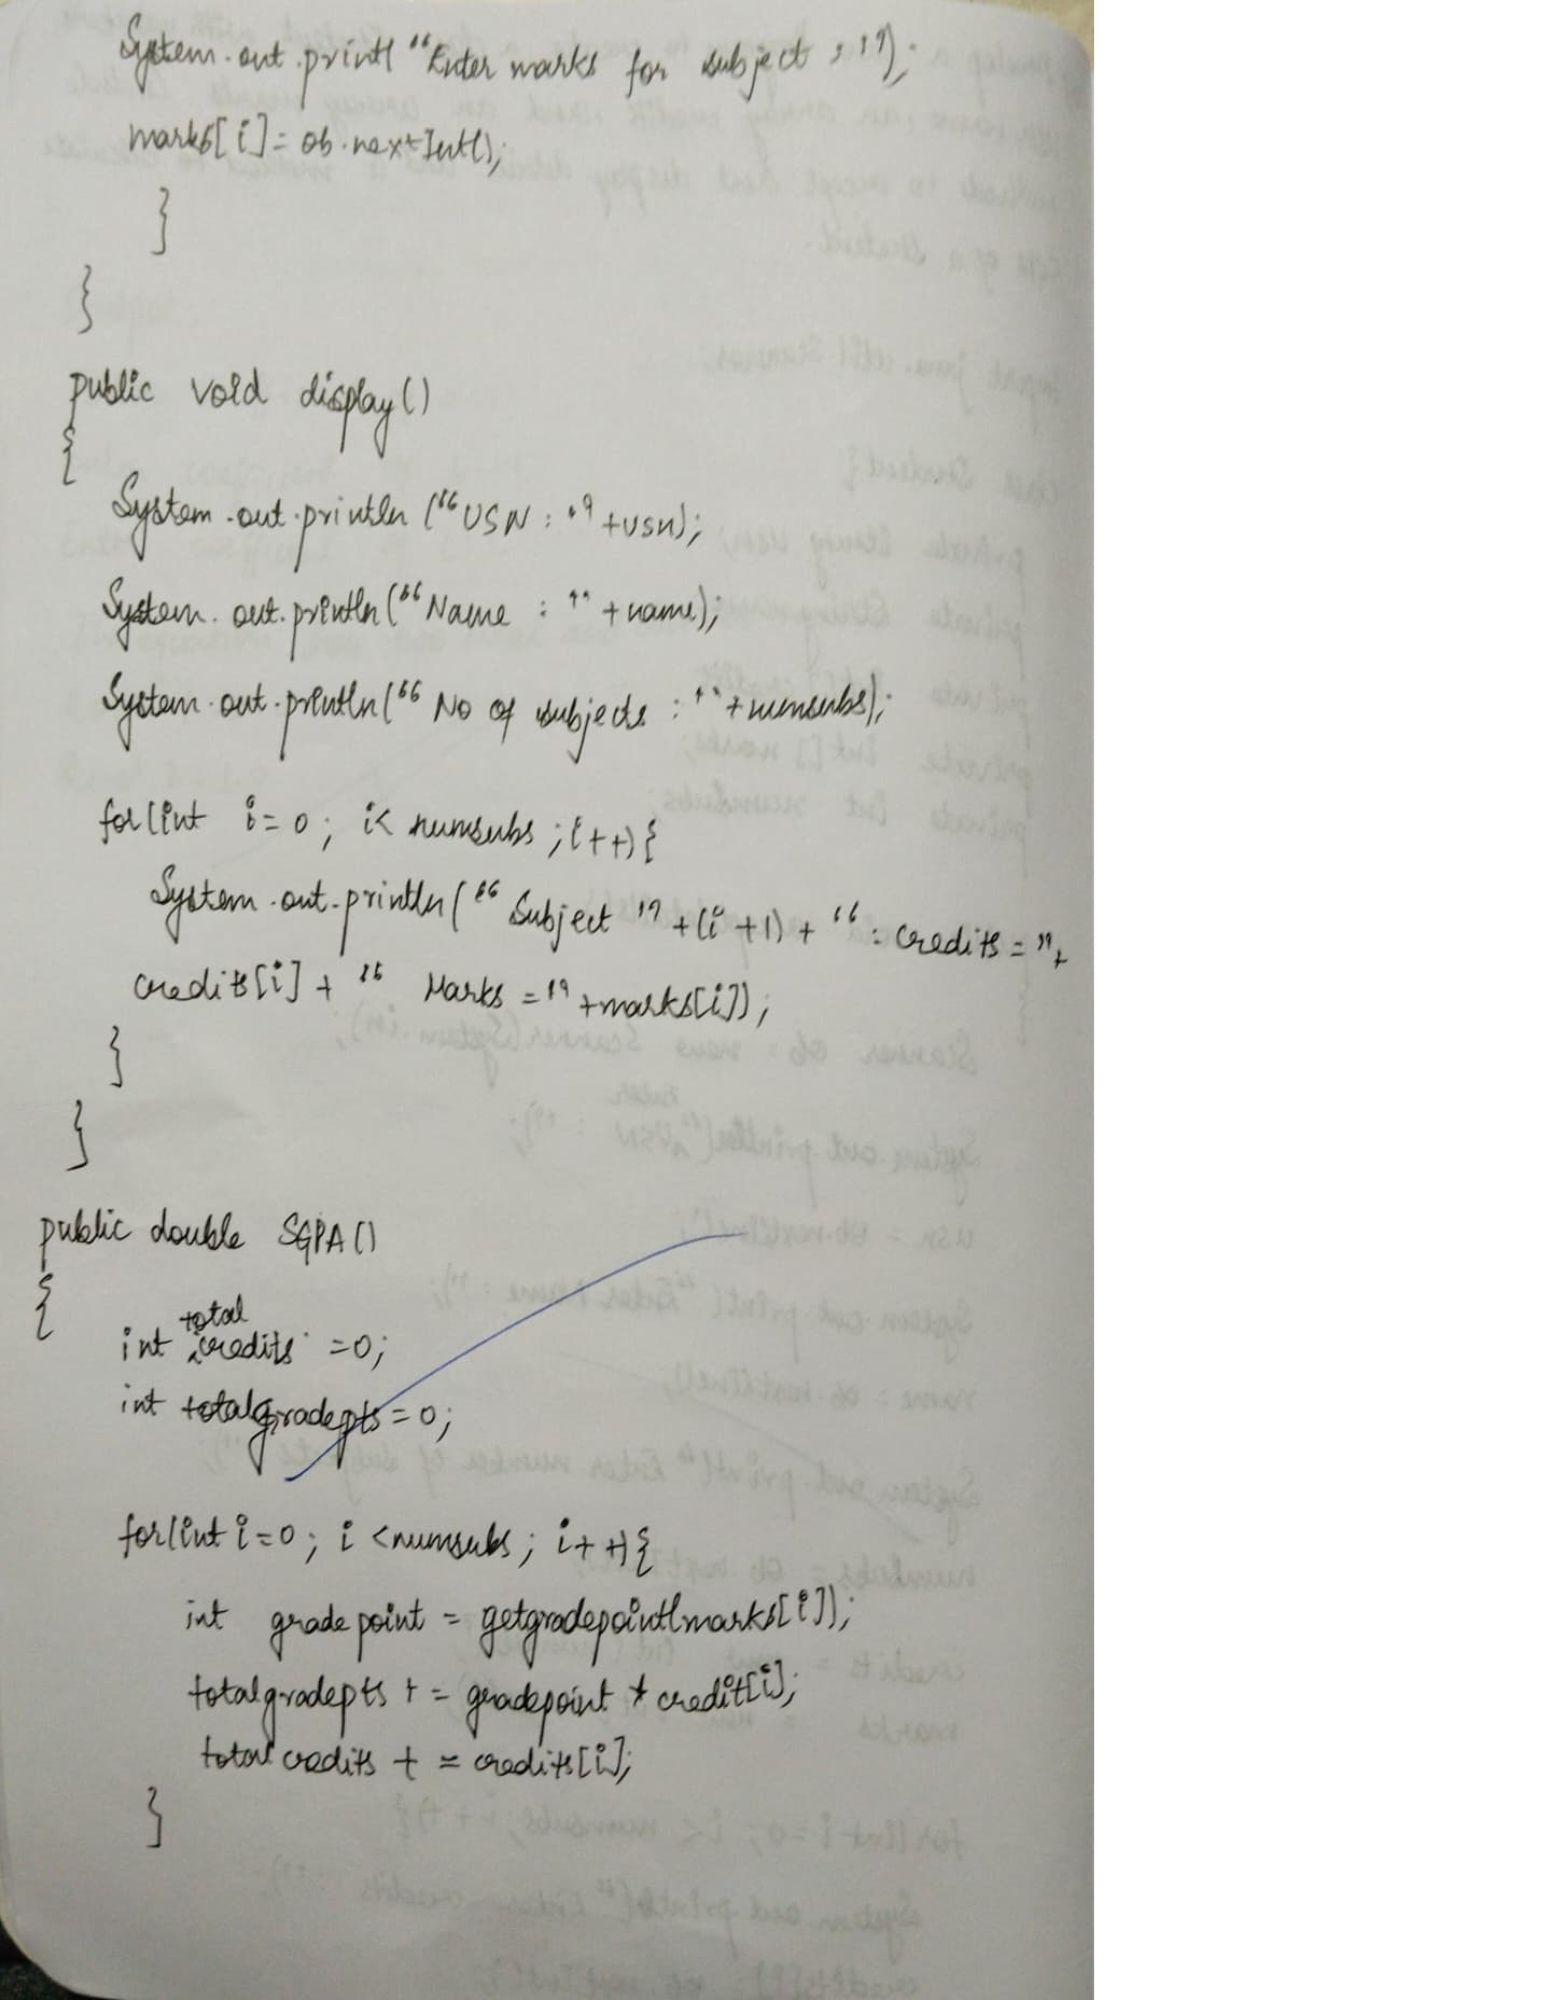 System.out.print( "Enter marks for subject : ");
marks[i]= ob.nextInt();
}
}
public void display()
{
System.out.println ("USN : "+usn);
System.out.println("Name : " + name);
System.out.println(" No of subjects : "+numsubs);
for(int i=0; i< numsubs ;i++){
System.out.println(" Subject "+(i+1) + " : credits = "+
credits[i] + " Marks = "+marks[i]);
}
}
public double SGPA()
{
int total credits =0;
int totalgradepts =0;
for(int i=0; i <numsubs; i++){
int gradepoint = getgradepoint(marks[i]);
totalgradepts += gradepoint * credit[i];
totalcredits += credits[i];
}